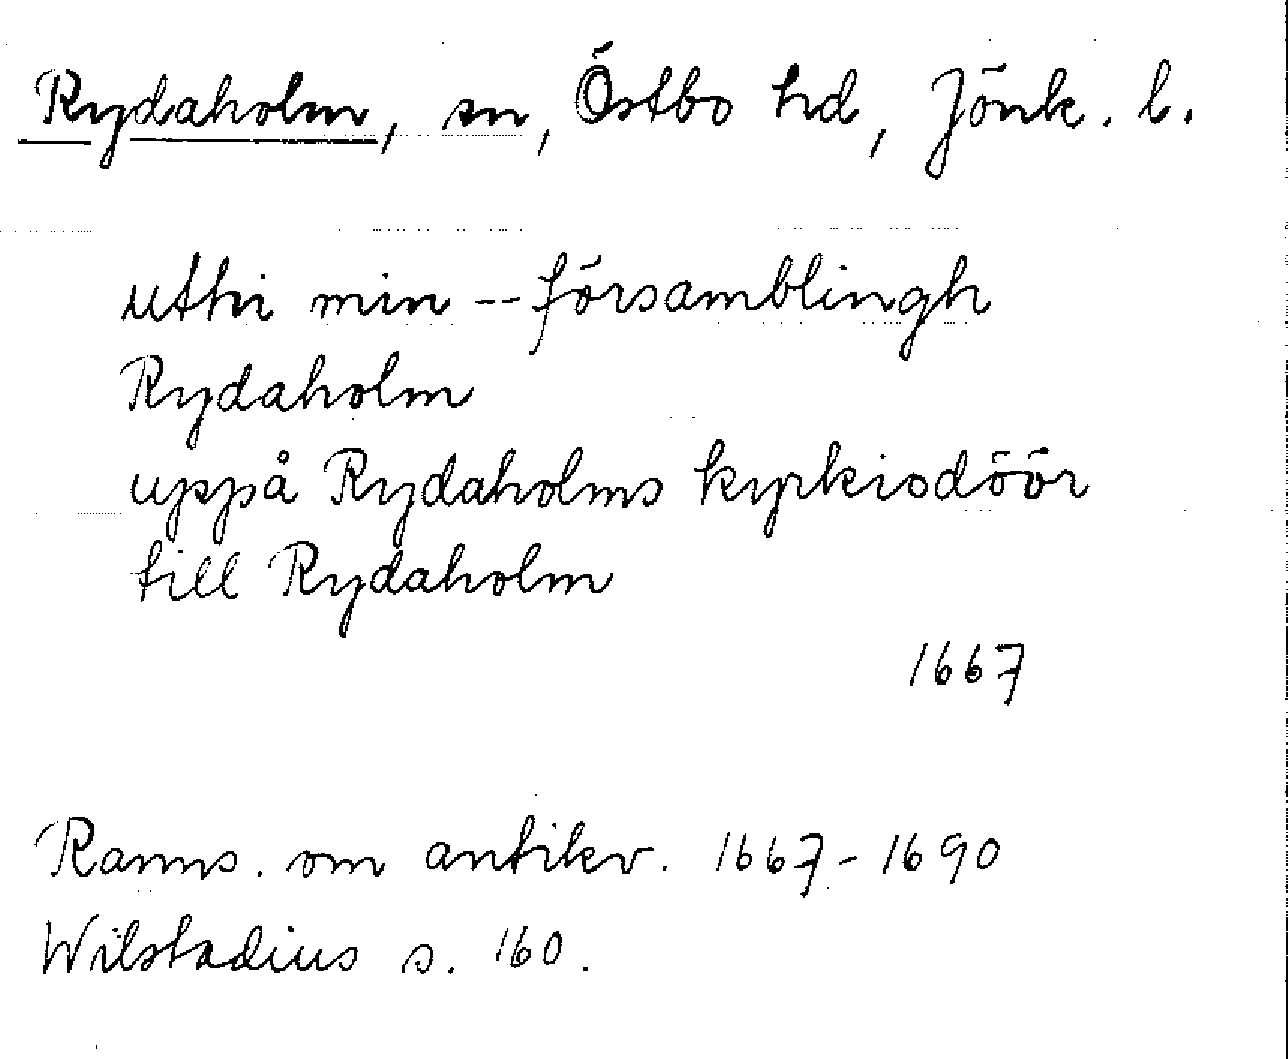 Rydaholm, sn, Östbo hd, Jönk. l.
uthi min -- församblingh
Rydaholm
uppå Rydaholms kyrkiodöör
till Rydaholm
1667
Ranns. om antikv. 1667-1690
Wilstadius s. 160.